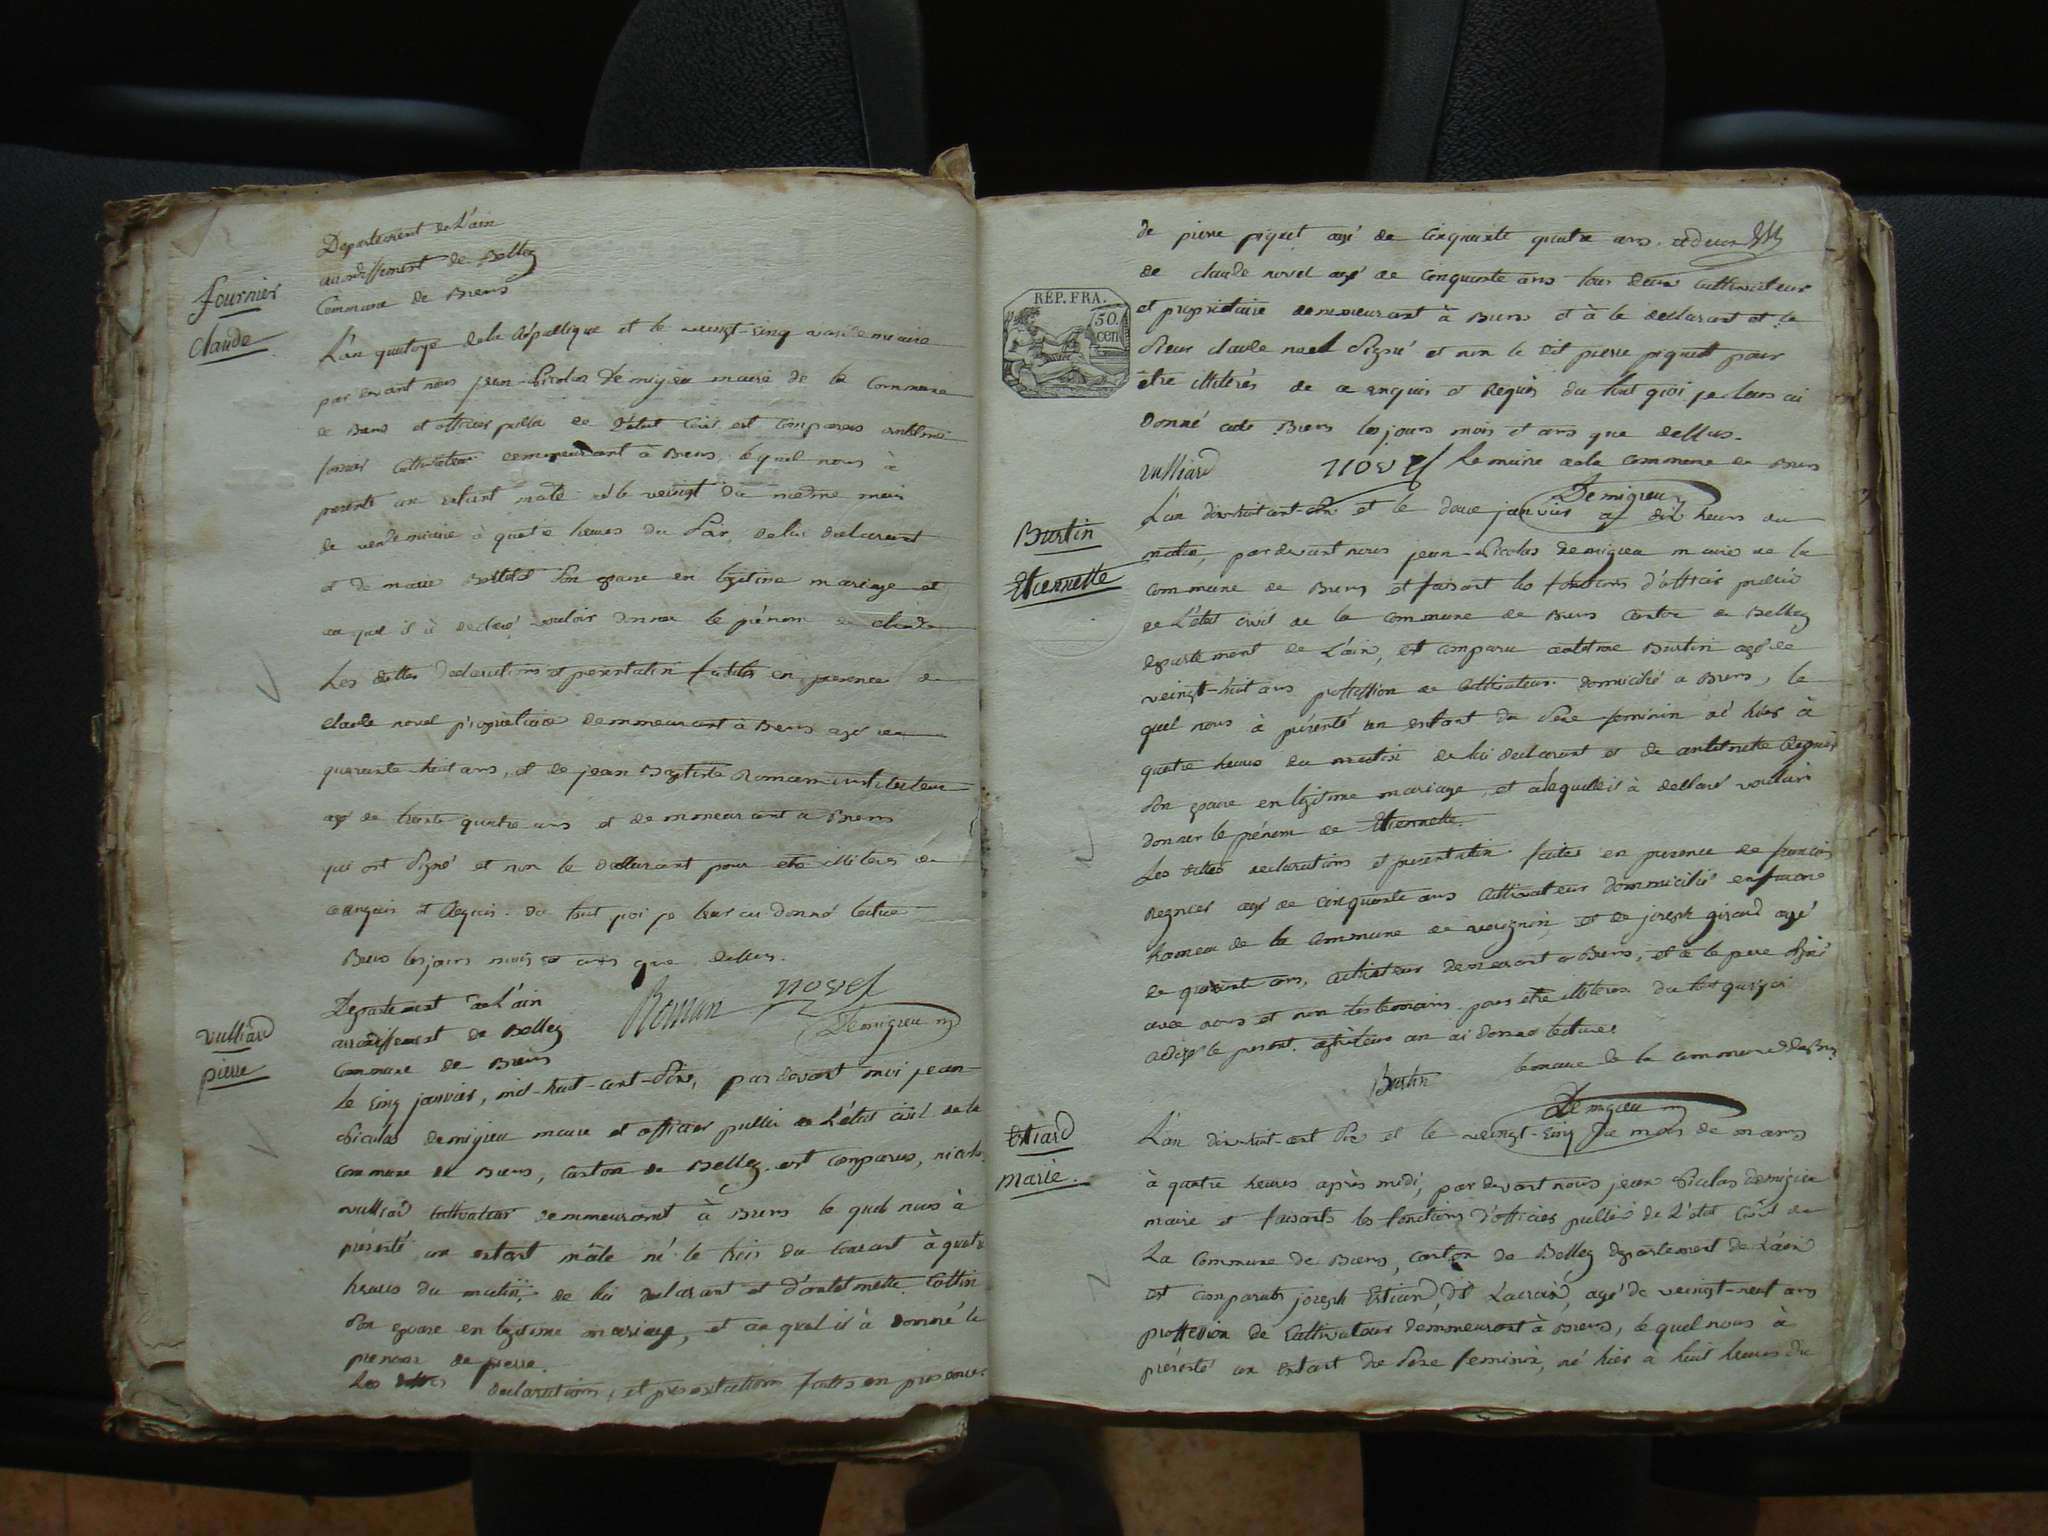 Departement de L'ain
arrondissement de Belley
Commune de Brens
fournier
Claude
L'an quatorze de la République et le veingt-cinq vandemiaire
par devant nous jean-Nicolas Demigieu maire de la Commune
de Brens et officier public de l'état Civil est comparus antelme
fornier Cultivateur demmeurant à Brens, lequel nous à
presenté un enfant mâle né le veingt du mesme mois
de vendemiaire à quatre heures du soir, de lui declarant
et de marie son epouse en legitime mariage et
au quel il à declaré vouloir donner le prénom de claude
Les dittes Declarations et presentation faittes en presence de
claude novel propriétaire demmeurant à Brens agé de
quarante-huit ans, et de jean Baptiste Roman instituteur
agé de trente quatre ans et demmeurant a Brens
qui ont signé et non le declarant pour etre illiteres de
ce enquis et Requis. du tout quoi je leur ai donné lecture
Brens les jours mois et ans que dessus.
Roman novel
Demigieu
Departement de L'ain
arrondissement de Belley
commune de Brens
vulliard
pierre
Le cinq janvier, mil-huit-cent-six, par devant moi jean-
Nicolas demigieu maire et officier public de L'état civil de la
commune de Brens, Canton de Belley est comparus, nicolas
vulliard cultivateur demmeurant à Brens le quel nous à
présenté un enfant mâle né le trois du courant à quatre
heures du matin, de lui declarant et d'antelmette Cottin
son epouse en legitime mariage, et au quel il à donné le
prenom de pierre.
Les dittes declarations, et presentations faittes en presence
de pierre piquet agé de cinquante quatre ans
de claude novel agé de cinquante ans tous deux cultivateur
et propriétaire demmeurant à Brens et à le declarant et le
sieur claude novel signé et non le dit pierre piquet pour
être illiterés de ce enquis et Requis du tout quoi je leurs ai
donné acte Brens les jours mois et ans que dessus.
vulliard novel Le maire de la commune de Brens
Demigieu
RÉP. FRA.
50.
cen
Burtin
Etiennette
L'an dix-huit cent six et le douze janvier a dix heures du
matin, par devant nous jean-Nicolas demigieu maire de la
commune de Brens et faisant les fonctions d'officier public
de L'état civil de la commune de Brens Canton de Belley
departement de L'ain, est comparu antelme Burtin agé de
veingt-huit ans proffession de cultivateur domicilié a Brens, le
quel nous à présenté un enfant du sexe feminin né hier à
quatre heures du matin de lui declarant et de antelmette Regnier
son epouse en legitime mariage, et a laquelle il à declaré vouloir
donner le prénom de Etiennette.
Les dittes declarations et presentation faites en presence de francois
Regnier agé de cinquante ans cultivateur dommicilié
hameau de la commune de et de joseph girard agé
de quarante ans, cultivateur demeurant a Brens, et à le pere signé
avec nous et non les temoins pour etre illiteres du tout quoi j'ai
Burtin Le maire de la commune de Brens
Demigieu
Estiard
Marie.
L'an dix-huit-cent six et le veingt-cinq du mois de mars
à quatre heures après midi, par devant nous jean Nicolas demigieu
maire et faisants les fonctions d'officier public de L'etat Civil de
La Commune de Brens, canton de Belley departement de L'ain
est comparut joseph Estiard, dit agé de veingt-neuf ans
proffession de Cultivateur demmeurant à Brens, le quel nous à
présenté un enfant du sexe feminin, né hier à huit heures du